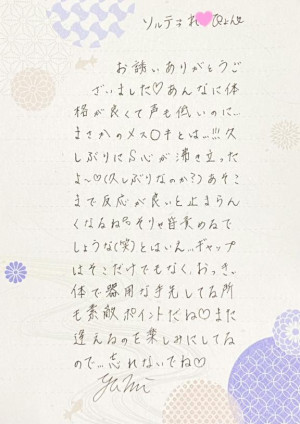 ソルティオれ♡Qょん様
お誘いありがとうご
ざいました♡あんなに体
格が良くて声も低いのに…
まさかのメス〇キとは…!!!久
しぶりにS心が沸き立った
よ〜♡(久しぶりなのか?)あそこ
まで反応が良いと止まらん
くなるね そりゃ皆責めるで
しょうな(笑)とはいえ…ギャップ
はそこだけでもなく、おっきぃ
体で器用な手先してる所
も素敵ポイントだね♡また
逢えるのを楽しみにしてる
ので…忘れないでね♡